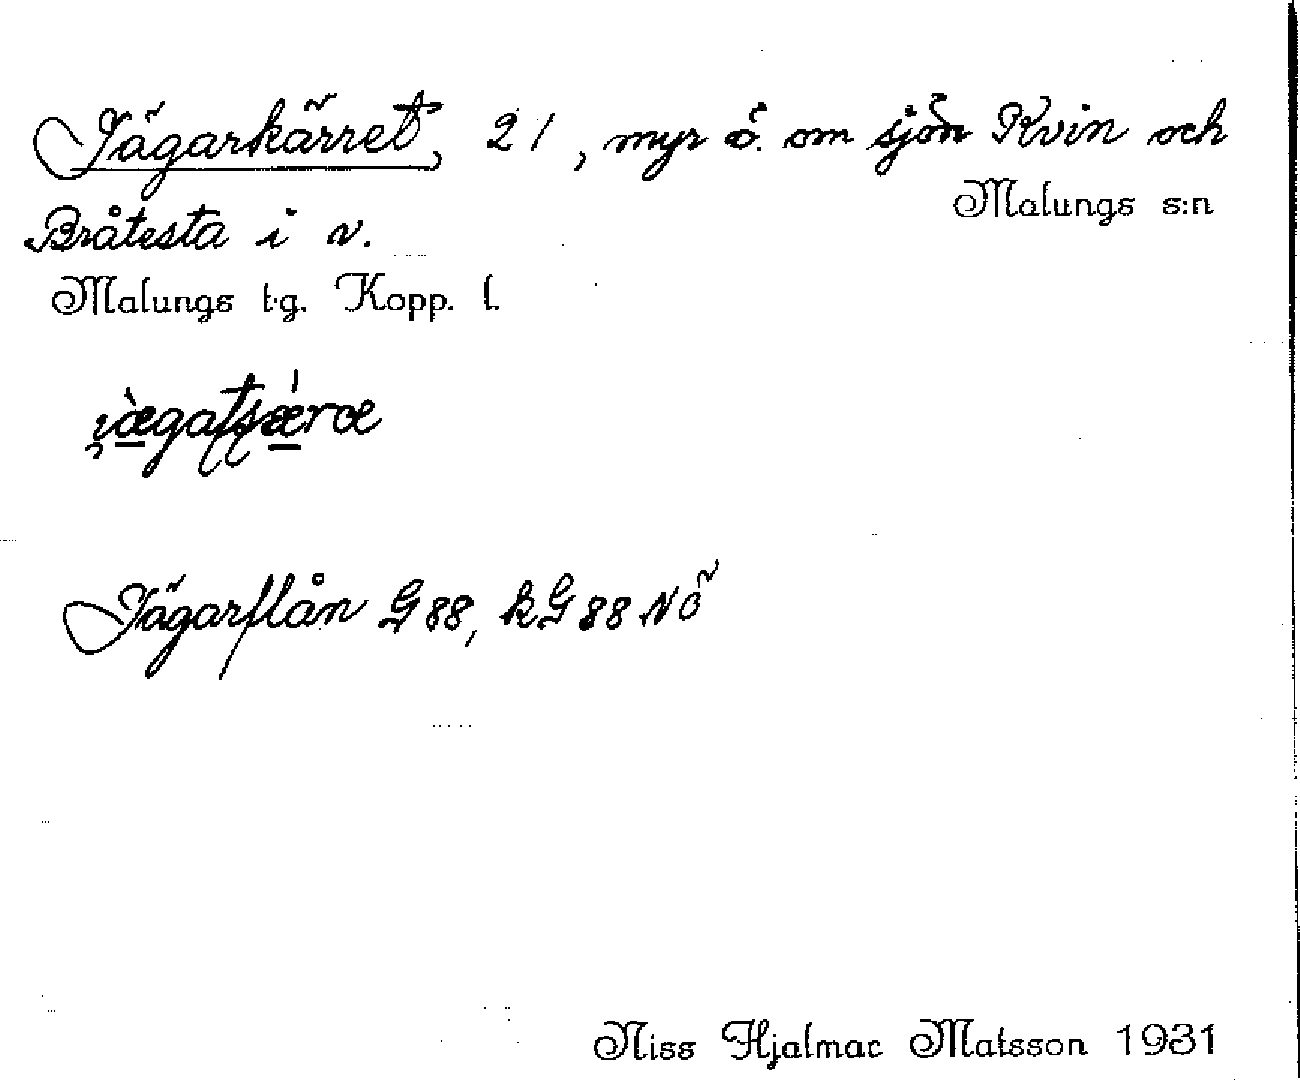 Jägarkärret, 21, myr ö. om sjön Kvin och
Malungs s:n
Bråtesta i v.
Malungs t.g. Kopp. l.
Jägarflån G88, kG88 NÖ
Niss Hjalmar Matsson 1931